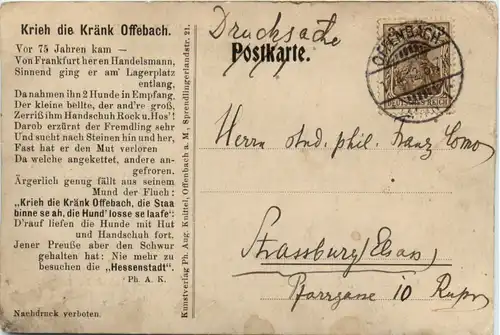 Krieh die Kränk Offebach.
Vor 75 Jahren kam —
Von Frankfurt her en Handelsmann,
Sinnend ging er am' Lagerplatz
entlang,
Da nahmen ihn 2 Hunde in Empfang.
Der kleine bellte, der and're groß,
Zerriß ihm Handschuh Rock u. Hos'!
Darob erzürnt der Fremdling sehr
Und sucht nach Steinen hin und her,
Fast hat er den Mut verloren
Da welche angekettet, andere an-
gefroren.
Ärgerlich genug fällt aus seinem
Mund der Fluch:
„Krieh die Kränk Offebach, die Staa
binne se ah, die Hund' losse se laafe“:
D'rauf liefen die Hunde mit Hut
und Handschuh fort.
Jener Preuße aber den Schwur
gehalten hat: Nie mehr zu
besuchen die „Hessenstadt“.
Ph. A. K.
Nachdruck verboten.
Kunstverlag Ph. Aug. Knittel, Offenbach a. M., Sprendlingerlandstr. 21.
Drucksache
Postkarte.
OFFENBACH
DEUTSCHES REICH
Herrn stud. phil. Franz Como
Strassburg (Elsass)
Pfarrgasse 10